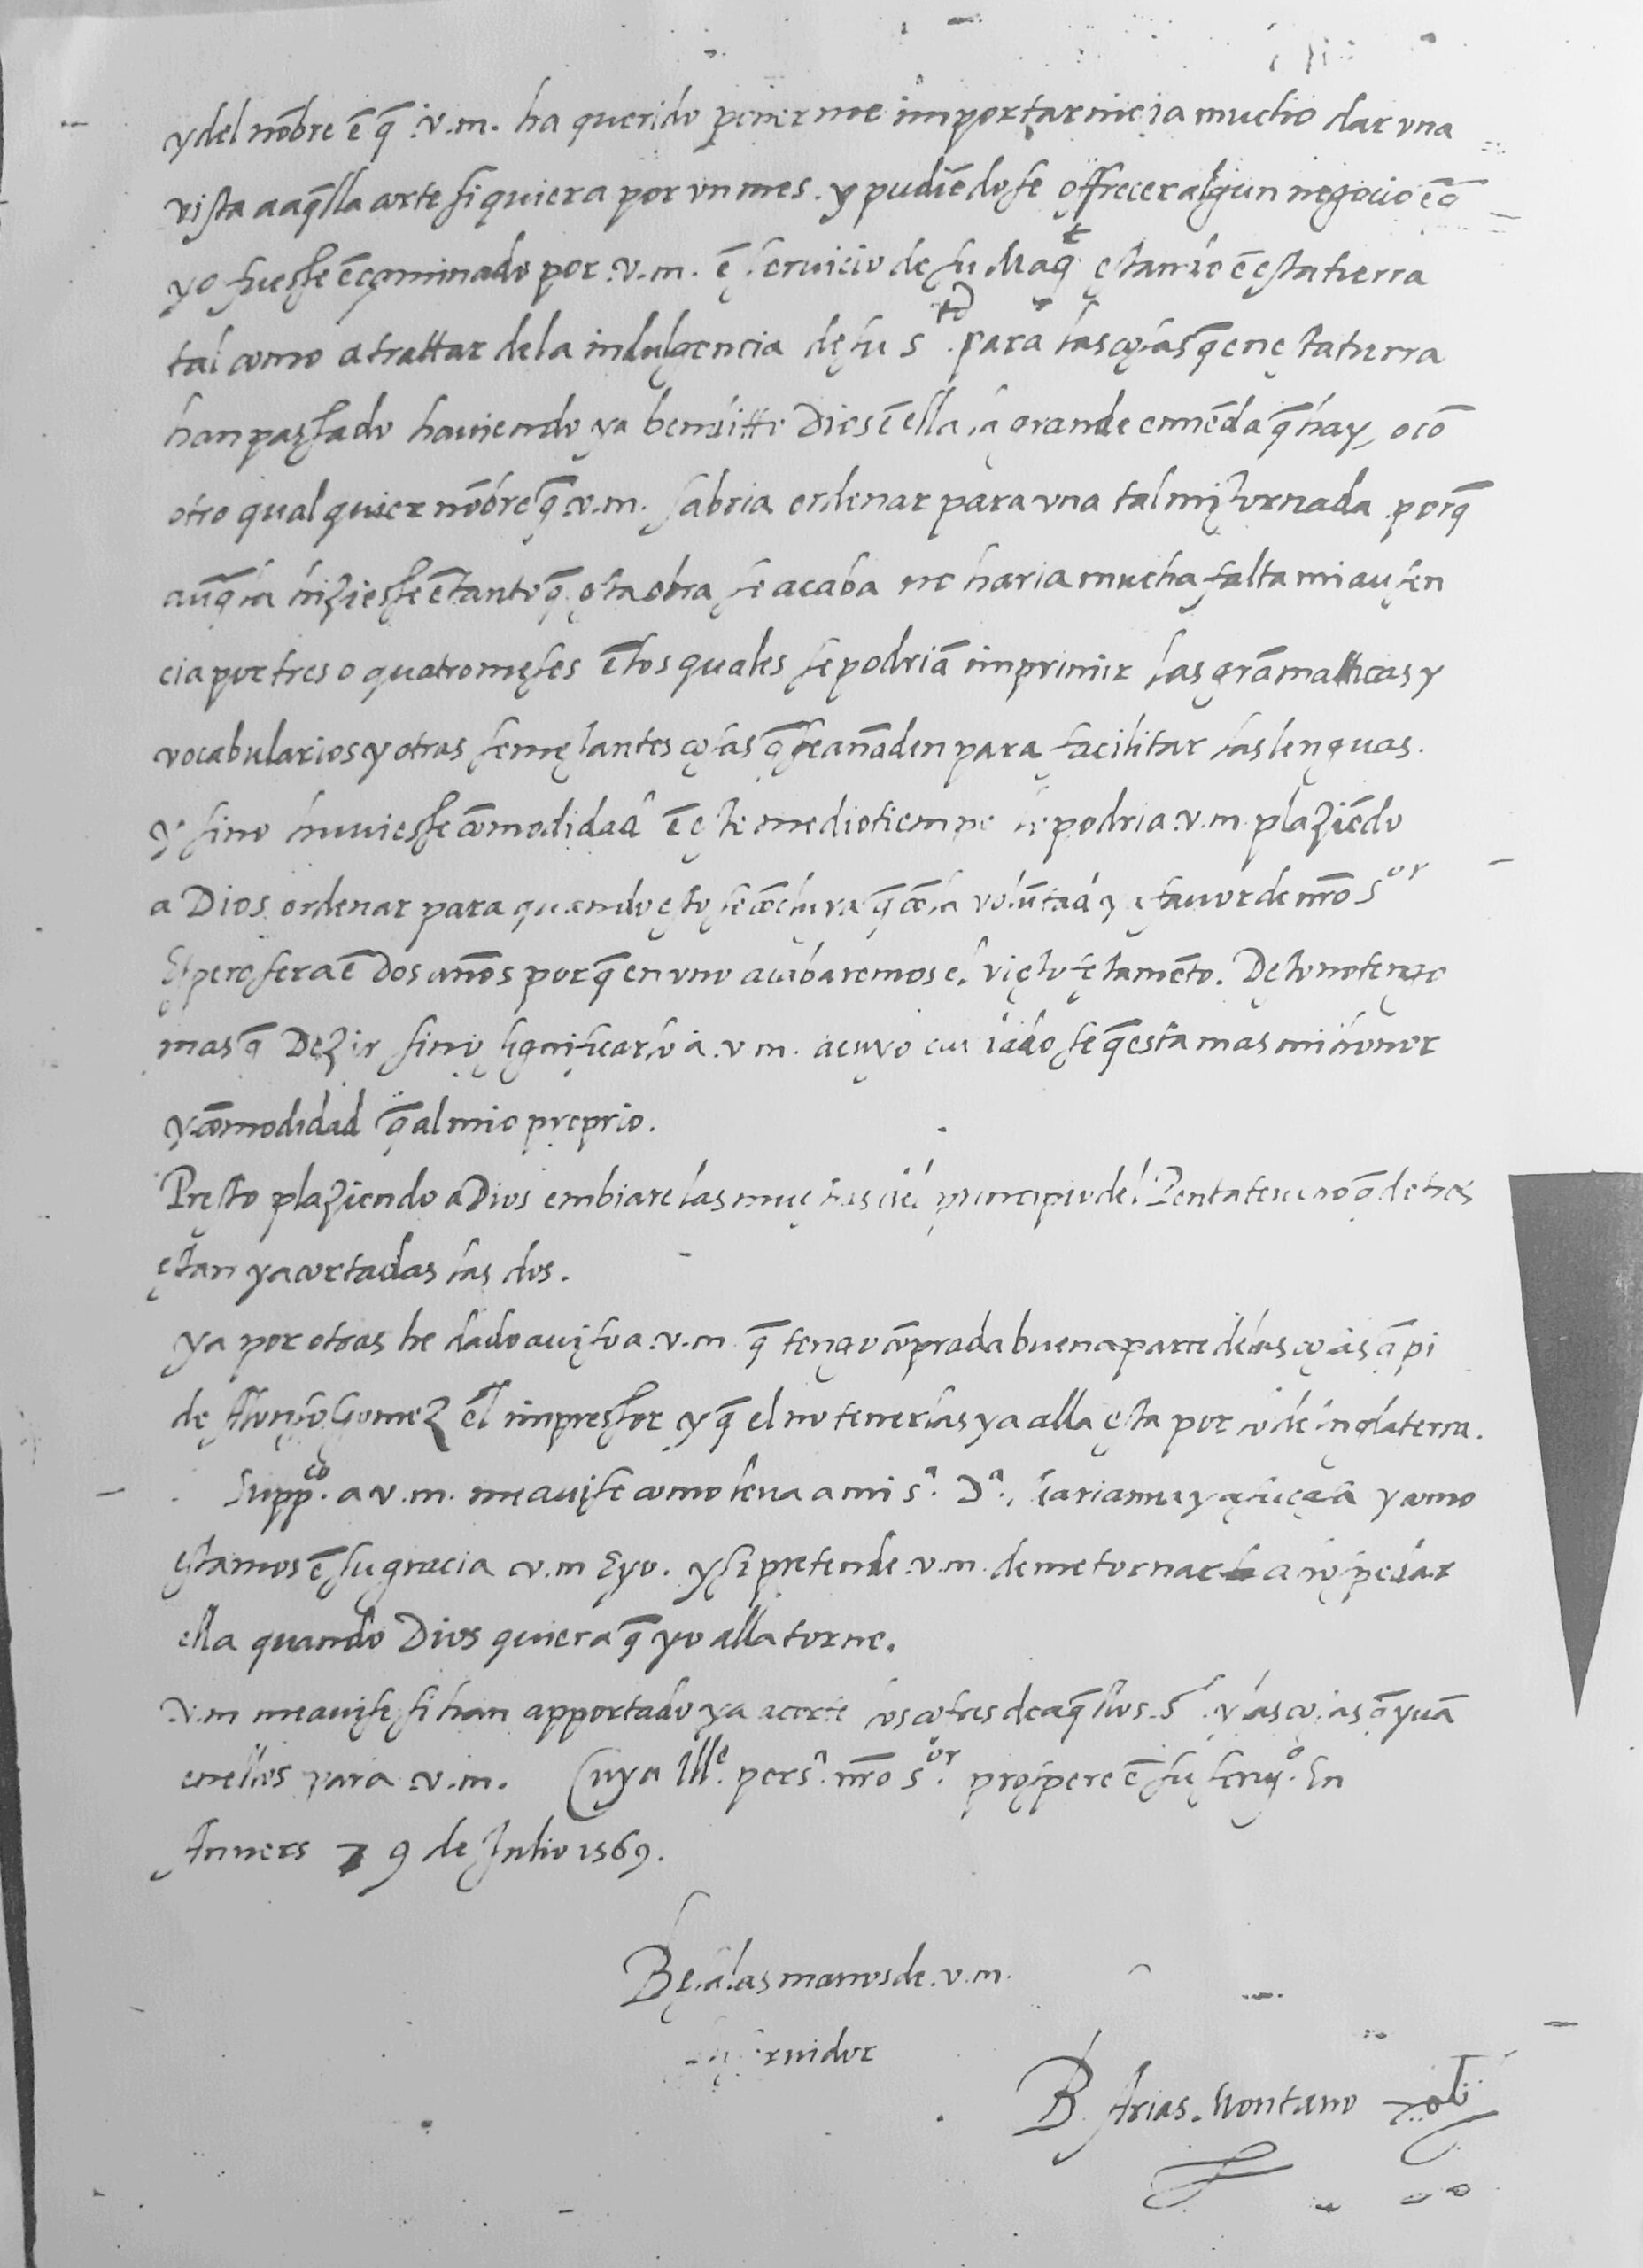 y del nõbre ẽ q̃ .v.m. ha querido ponerme importarmeia mucho dar vna
vista a aq̃lla corte siquiera por vn mes. y pudiẽdose offrecer algun negocio ẽ q̃
yo fuesse ẽcaminado por .v.m. ẽ seruicio de su Magᵗ estando ẽ esta tierra
tal como a trattar de la indulgencia de su Sᵗᵈ. para las cosas q̃ en esta tierra
han passado hauiendo ya benditto Dios ẽ ella la grande enmẽda q̃ hay, o cõ
otro qualquier nõbre q̃ .v.m. sabria ordenar para vna tal mi jornada. porq̃
aũq̃ la hiziesse ẽtanto q̃ esta obra se acaba no haria mucha falta mi ausen
cia por tres o quatro meses ẽ los quales se podriã imprimir las grãmatticas y
vocabularios y otras semejantes cosas q̃ se añaden para facilitar las lenguas.
y si no huuiesse cõmodidad ẽ este medio tiempo se podria .v.m. plaziẽdo
a Dios ordenar para quando esto se cõcluya q̃ cõ la volũtad y fauor de nr̃o Sᵒʳ
Espero sera ẽ dos años porq̃ en vno acabaremos el viejo testamẽto. Desto no tengo
mas q̃ Dezir sino significarlo a .v.m. a cuyo cuidado se q̃ esta mas mi honor
y cõmodidad q̃ al mio proprio.
Presto plaziendo a Dios embiare las muestras del principio del Pentateucho q̃ de tres
estan ya cortadas las dos.
ya por otras he dado auiso a .v.m. q̃ tengo cõprada buena parte de las cosas q̃ pi
de Alonso Gomez el impressor y q̃ el no tenerlas ya alla esta por lo de inglaterra.
Suppᶜᵒ. a v.m. me auise como le va a mi Sᵃ. Dᵃ. y a su casa y como
estamos ẽ su gracia v.m. E yo. y si pretende .v.m. de me tornar a
ella quando Dios quiera q̃ yo alla torne.
.v.m me auise si han apportado ya a corte los cofres de aq̃llos .Sᵉˢ. y las cosas q̃ yuã
en ellos para .v.m. Cuya Illᵉ. persᵃ. nr̃o Sᵒʳ. prospere ẽ su seruiᵒ. En
Anuers 9 de Julio 1569.
Besa las manos de .v.m.
su seruidor
B. Arias. Montano תלמיד